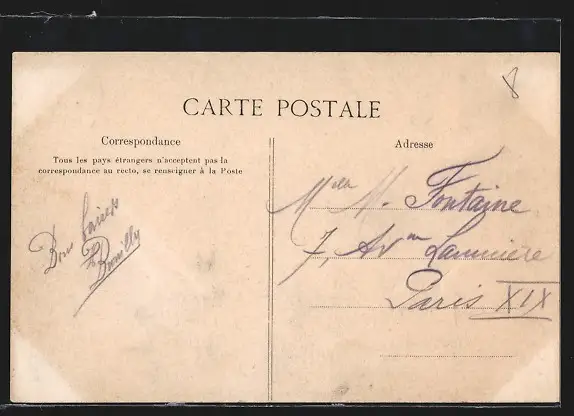 8
CARTE POSTALE
Correspondance
Tous les pays étrangers n'acceptent pas la
correspondance au recto, se renseigner à la Poste
Bons baisers
Adresse
Melle M. Fontaine
7, Avue Laumière
Paris XIX